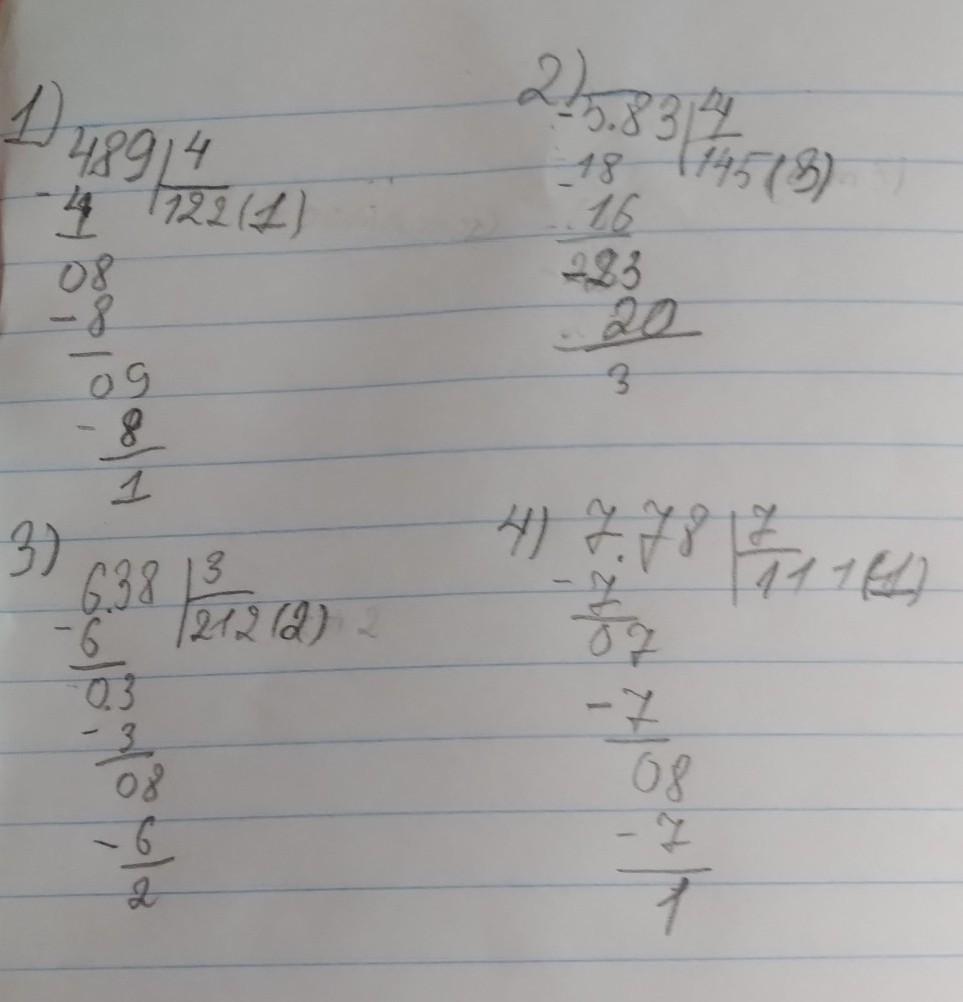 1)
489 4
- 4 122(1)
08
- 8
09
- 8
1
2)
- 5.83 4
- 18 145(3)
16
- 23
20
3
3)
6.38 3
- 6 212(2)
0.3
- 3
08
- 6
2
4) 7.78 7
- 7 111(1)
07
- 7
08
- 7
1